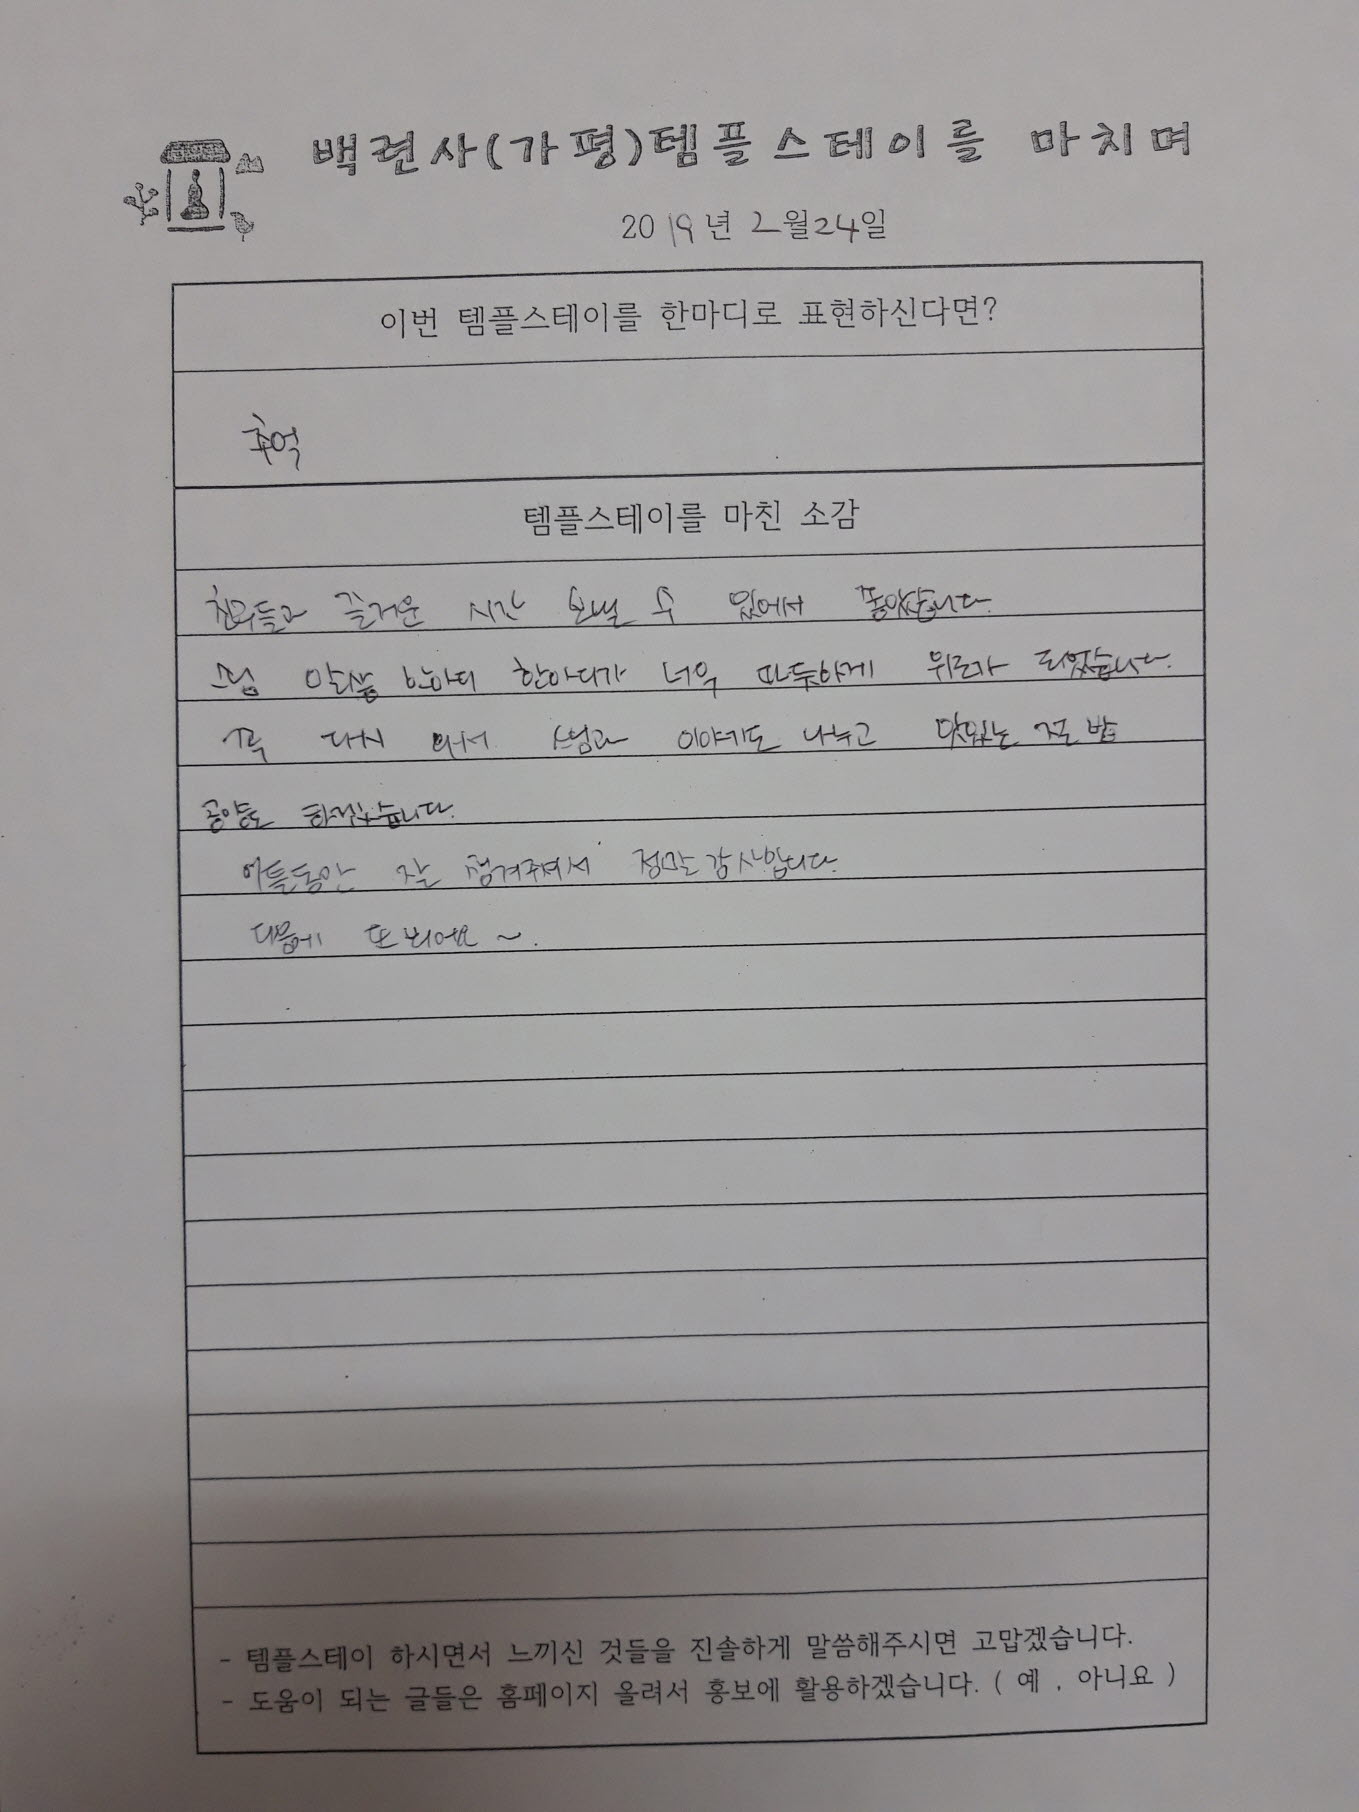 백련사(가평)템플스테이를 마치며
2019년 2월24일
이번 템플스테이를 한마디로 표현하신다면?
추억
템플스테이를 마친 소감
친구들과 즐거운 시간 보낼 수 있어서 좋았습니다.
스님 말씀 한마디 한마디가 너무 따뜻하게 위로가 되었습니다.
꼭 다시 와서 스님과 이야기도 나누고 맛있는 절밥
공양도 하겠습니다.
이틀동안 잘 챙겨주셔서 정말 감사합니다.
다음에 또 뵈어요 ~.
- 템플스테이 하시면서 느끼신 것들을 진솔하게 말씀해주시면 고맙겠습니다.
- 도움이 되는 글들은 홈페이지 올려서 홍보에 활용하겠습니다. ( 예 , 아니요 )